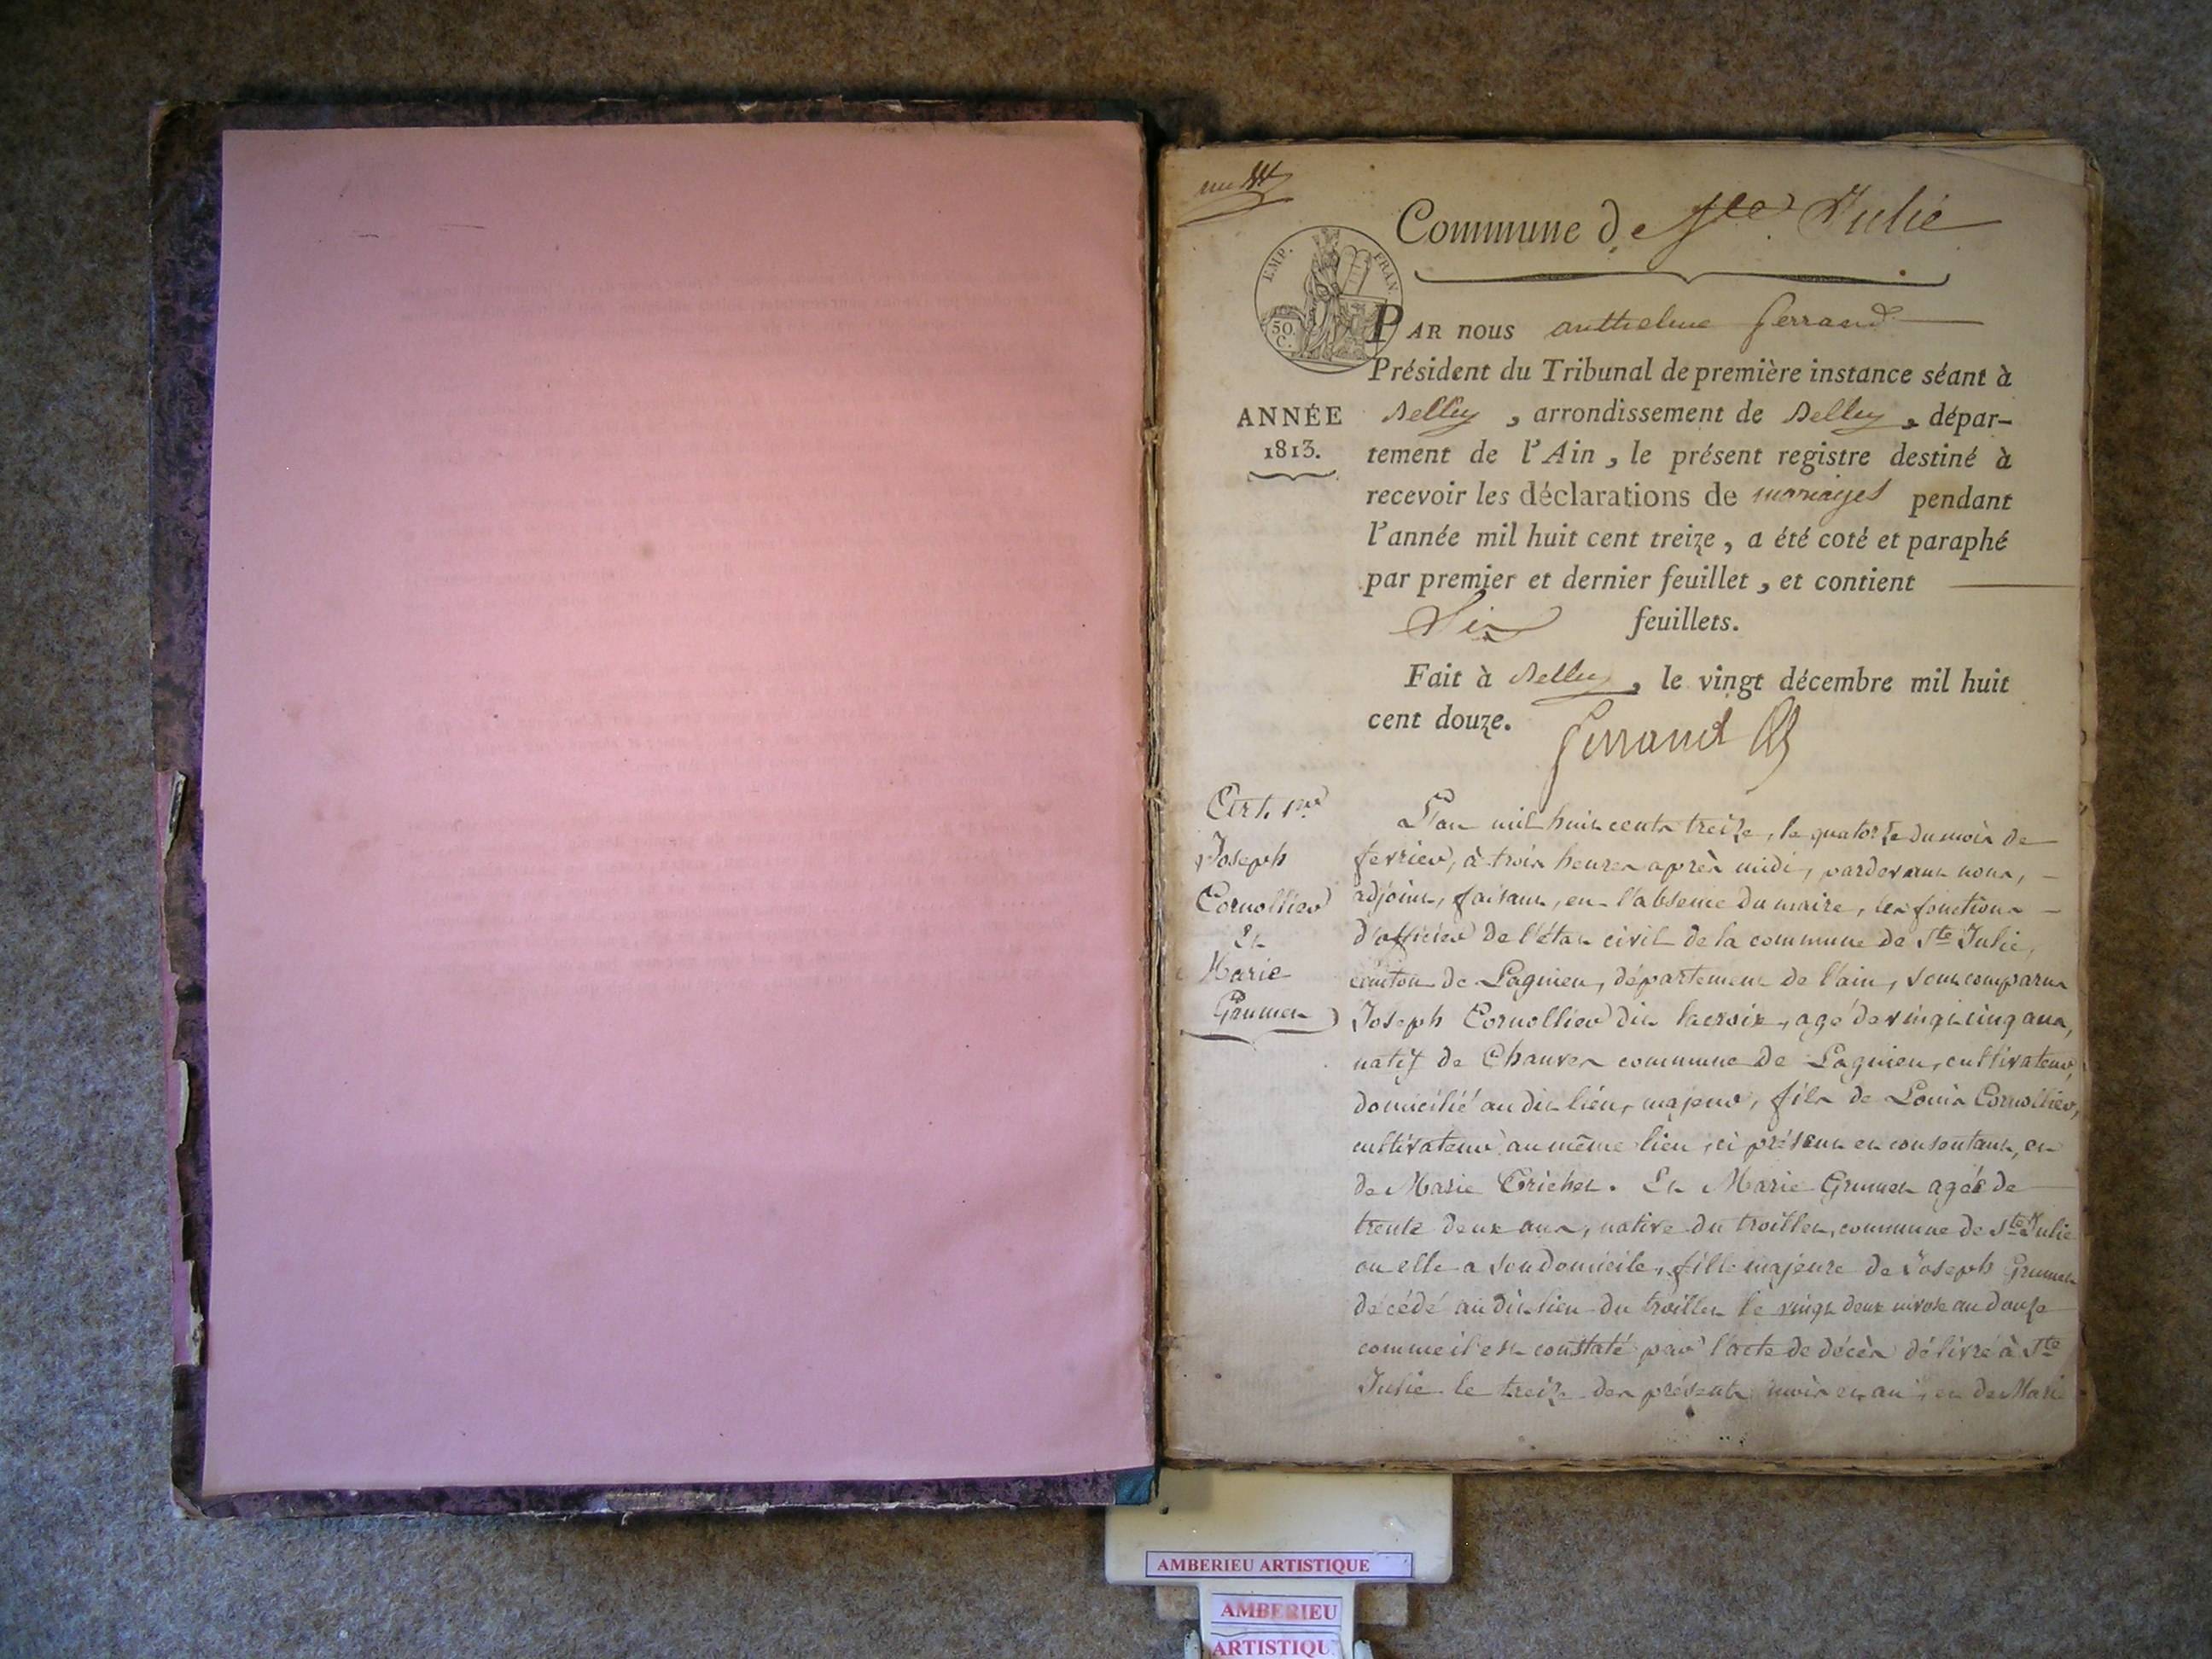 Commune de Ste. Julie
EMP. FRAN.
50.
C.
PAR nous anthelme ferrand
Président du Tribunal de première instance séant à
ANNÉE
1813.
Belley, arrondissement de Belley, dépar-
tement de l'Ain, le présent registre destiné à
recevoir les déclarations de mariages pendant
l'année mil huit cent treize, a été coté et paraphé
par premier et dernier feuillet, et contient
Six feuillets.
Fait à Belley, le vingt décembre mil huit
cent douze.
ferrand
Art. 1er
Joseph
Cornollier
Et
Marie
Grumet
L'an mil huit cents treize, le quatorze du mois de
fevrier, à trois heures après midi, pardevant nous,
adjoint, faisant, en l'absence du maire, les fonctions
d'officier de l'état civil de la commune de Ste Julie,
canton de Lagnieu, département de l'ain, sont comparus
Joseph Cornollier dit lacroix, agé de vingt cinq ans,
natif de Chauves commune de Lagnieu, cultivateur,
domicilié au dit lieu, majeur, fils de Louis Cornollier,
cultivateur au même lieu, ci présent et consentant, et
de Marie Trichet. Et Marie Grumet agée de
trente deux ans, native du troillet, commune de Ste Julie
ou elle a son domicile, fille majeure de Joseph Grumet
décédé au dit lieu du troillet le vingt deux nivose an douze
comme il est constaté par l'acte de décès délivré à Ste
Julie le treize des présents mois et an, et de Marie
AMBERIEU ARTISTIQUE
AMBERIEU
ARTISTIQU